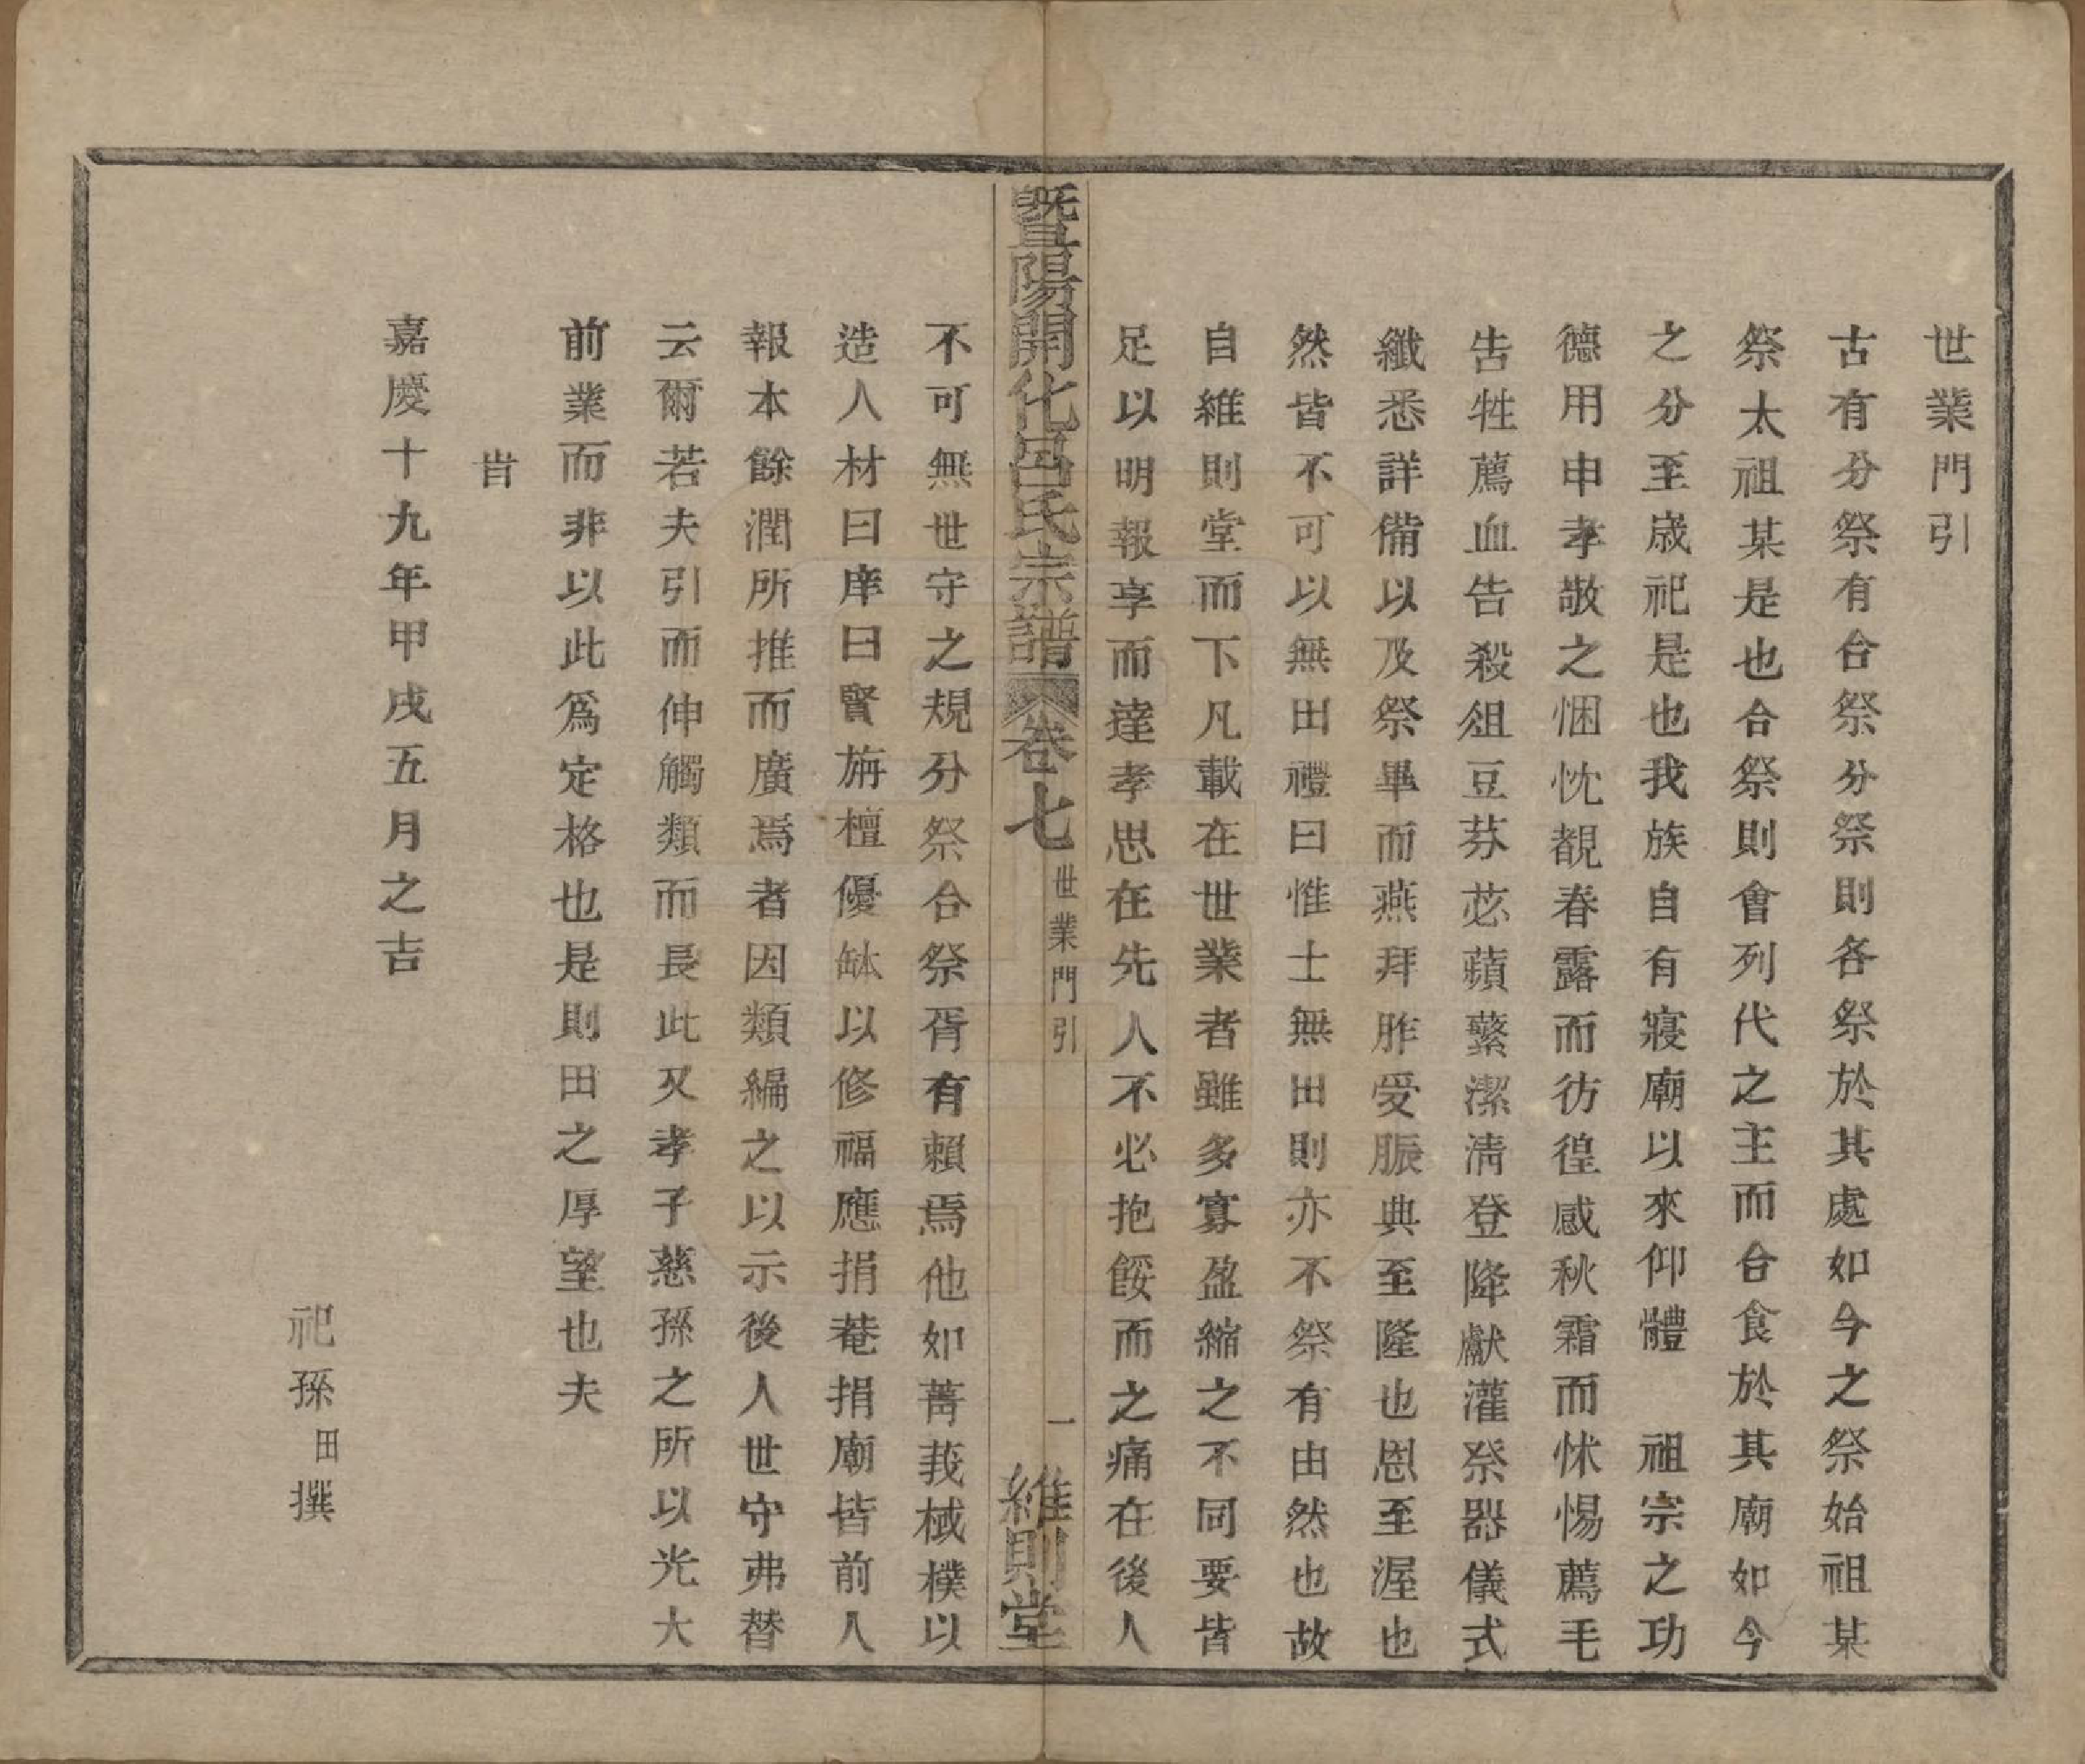 世業門引
古有分祭有合祭分祭則各祭於其處如今之祭始祖某
祭太祖某是也合祭則會列代之主而合食於其廟如今
之分至歲祀是也我族自有寢廟以來仰體　祖宗之功
德用申孝敬之悃忱覩春露而彷徨感秋霜而怵惕薦毛
告牲薦血告殺俎豆芬苾蘋蘩潔淸登降獻灌祭器儀式
纖悉詳備以及祭畢而燕拜胙受脤典至隆也恩至渥也
然皆不可以無田禮曰惟士無田則亦不祭有由然也故
自維則堂而下凡載在世業者雖多寡盈縮之不同要皆
足以明報享而達孝思在先人不必抱餒而之痛在後人
暨陽開化呂氏宗譜 卷七 世業門引 一 維則堂
不可無世守之規分祭合祭胥有賴焉他如菁莪棫樸以
造人材曰庠曰賢旃檀優缽以修福應捐菴捐廟皆前人
報本餘潤所推而廣焉者因類編之以示後人世守弗替
云爾若夫引而伸觸類而長此又孝子慈孫之所以光大
前業而非以此爲定格也是則田之厚望也夫
旹
嘉慶十九年甲戌五月之吉
祀孫田撰